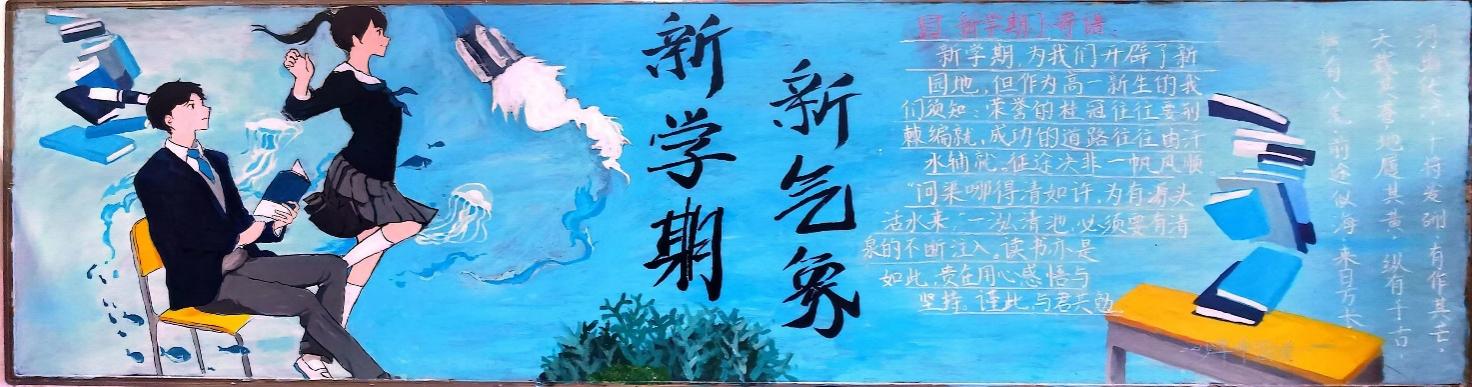 新学期
新气象
新学期
寄语
新学期,为我们开辟了新
园地,但作为高一新生的我
们须知:荣誉的桂冠往往要荆
棘编就,成功的道路往往由汗
水铺就。征途决非一帆风顺
“问渠哪得清如许,为有源头
活水来”一泓清池,必须要有清
泉的不断注入。读书亦是
如此,贵在用心感悟与
坚持,谨此,与君共勉
干将发硎,有作其芒,
天戴其苍,地履其黄,纵有千古,
横有八荒,前途似海,来日方长。